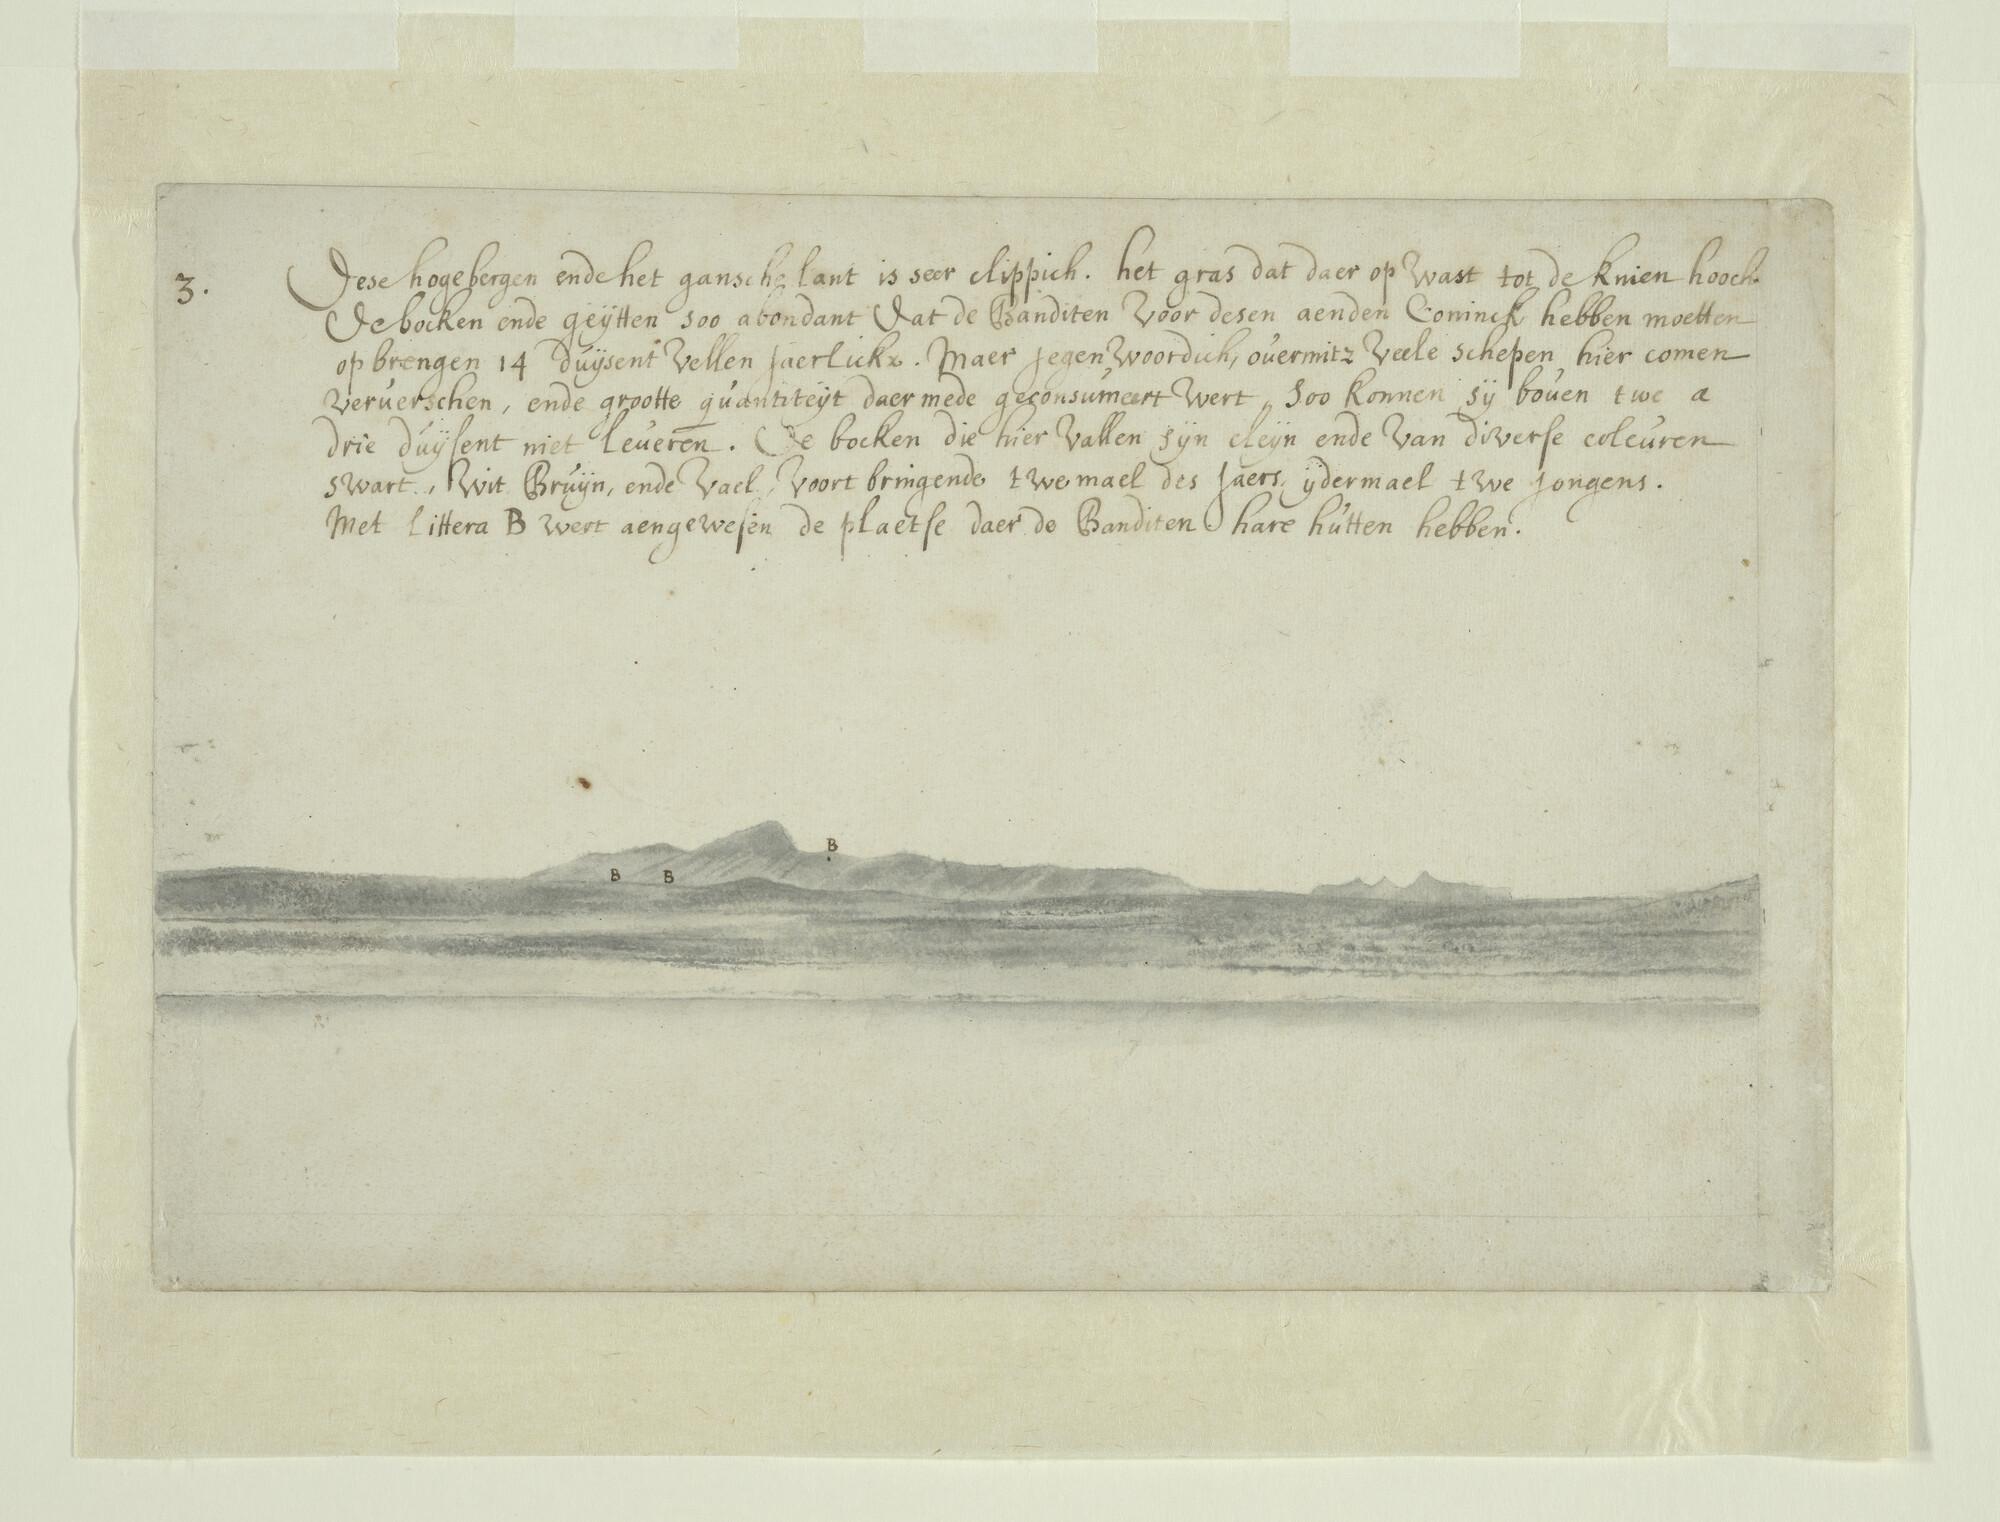 3. Dese hoge bergen ende het gansche lant is seer clippich. het gras dat daer op wast tot de knien hooch.
De bocken ende geÿtten soo abondant dat de Banditen voor desen aenden Coninck hebben moetten
op brengen 14 duÿsent vellen jaerlickx. Maer jegenwoordich, overmitz veele schepen hier comen
ververschen, ende grootte quantiteÿt daer mede geconsumeert wert, soo konnen sÿ boven twe a
drie duÿsent niet leveren. De bocken die hier vallen sÿn cleÿn ende van diverse coleuren
swart, wit Bruÿn, ende vael, voort bringende twemael des jaers, ÿdermael twe jongens.
Met littera B wert aengewesen de plaetse daer de Banditen hare hutten hebben.
B
B B